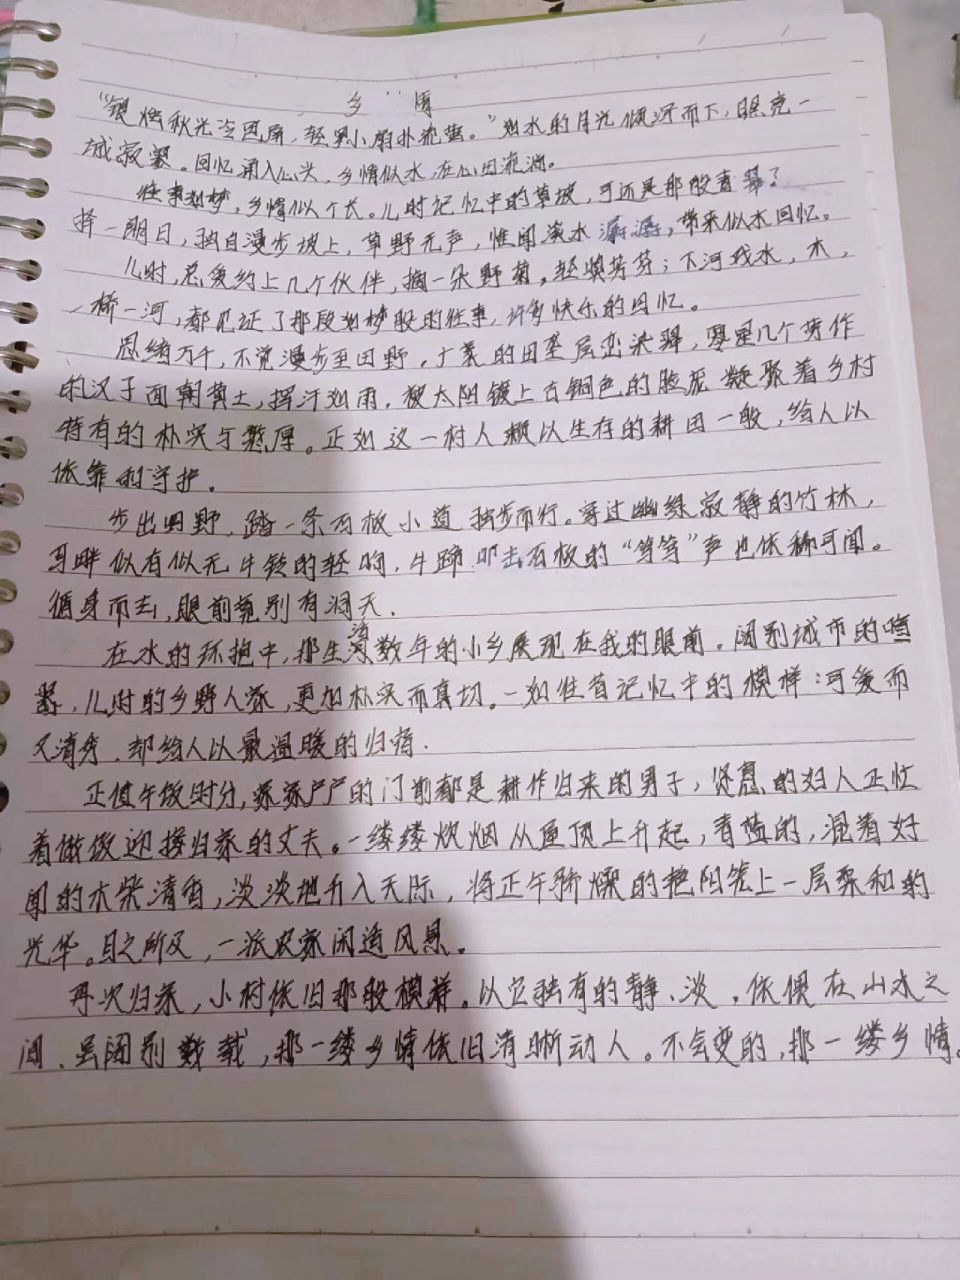 乡情
“银烛秋光冷画屏,轻罗小扇扑流萤。”如水的月光倾泻而下,照亮一
城寂寥。回忆涌入心头,乡情似水,在心田流淌。
往事如梦,乡情似个长。儿时记忆中的草坡,可还是那般青翠?
择一朗日,独自漫步坡上,草野无声,惟闻淡水潺潺,带来似水回忆。
儿时,总爱约上几个伙伴,摘一朵野菊,轻嗅芳芬;下河戏水,一木,
一桥一河,都见证了那段如梦般的往事,许多快乐的回忆。
思绪万千,不觉漫步至田野,广袤的田垄层峦泱驿,零星几个劳作
的汉子面朝黄土,挥汗如雨,被太阳镀上古铜色的脸庞凝聚着乡村
特有的朴实与憨厚。正如这一村人赖以生存的耕田一般,给人以
依靠和守护。
步出田野,踏一条石板小道独步而行。穿过幽绿寂静的竹林,
耳畔似有似无牛铃的轻响,牛蹄叩击石板的“笃笃”声也依稀可闻。
循身而去,眼前竟别有洞天。
在水的环抱中,那生活数年的小乡展现在我的眼前。阔别城市的喧
嚣,儿时的乡野人家,更加朴实而真切。一如往昔记忆中的模样:可爱而
又清秀,却给人以最温暖的归宿.
正值午饭时分,家家户户的门前都是耕作归来的男子,贤惠的妇人正忙
着做饭迎接归家的丈夫。一缕缕炊烟从屋顶上升起,青蓝的,混着好
闻的木柴清香,淡淡地升入天际,将正午骄燥的艳阳笼上一层柔和的
光华。目之所及,一派农家闲适风景。
再次归家,小村依旧那般模样。以它独有的静、淡,依偎在山水之
间、虽阔别数载,那一缕乡情依旧清晰动人。不会变的,那一缕乡情。